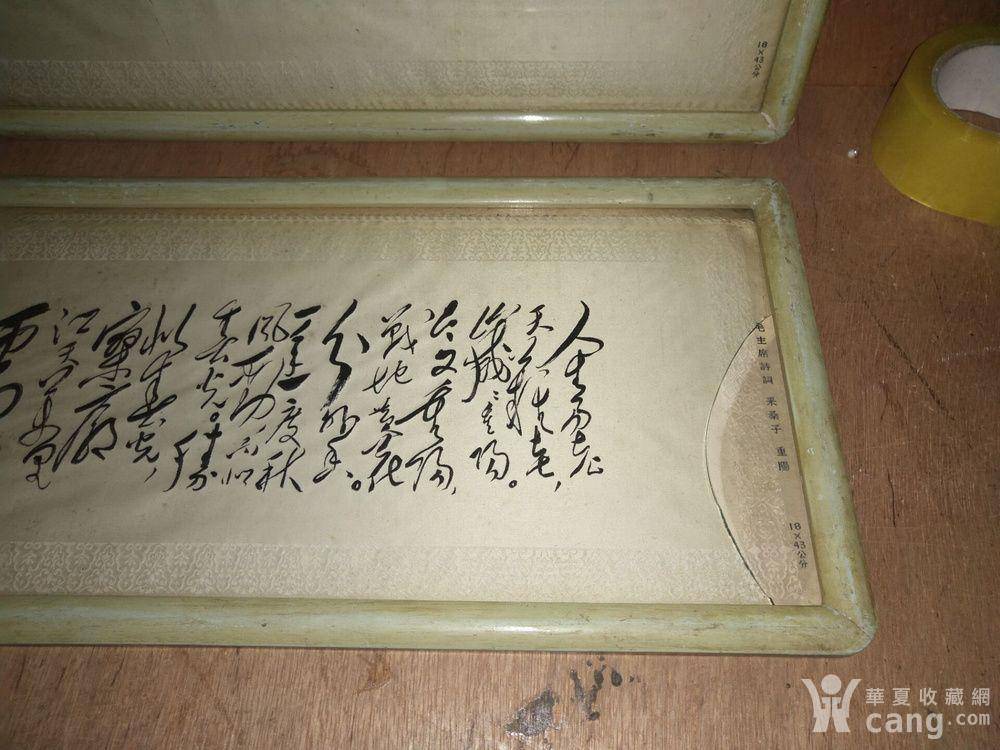 18×43公分
毛主席詩詞 采桑子 重陽
18×43公分
人生易老
天难老，
歲々重陽。
今又重陽，
戰地黄花
分外香。
一年一度秋
風劲不似
春光。勝
似春光，
寥廓
江天万里
霜
華夏收藏網
cang.com